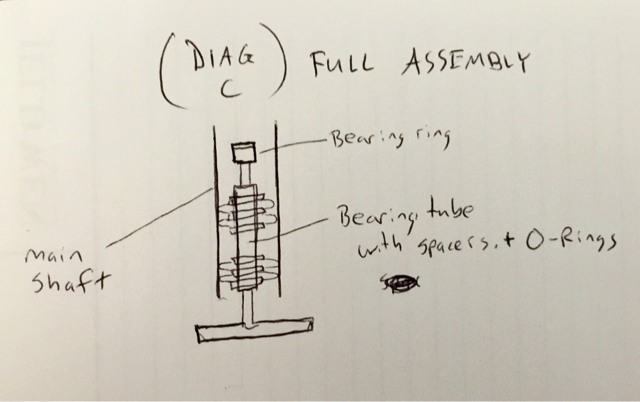 (DIAG C) FULL ASSEMBLY
Bearing ring
Bearing tube
with spacers. + O-Rings
main
shaft